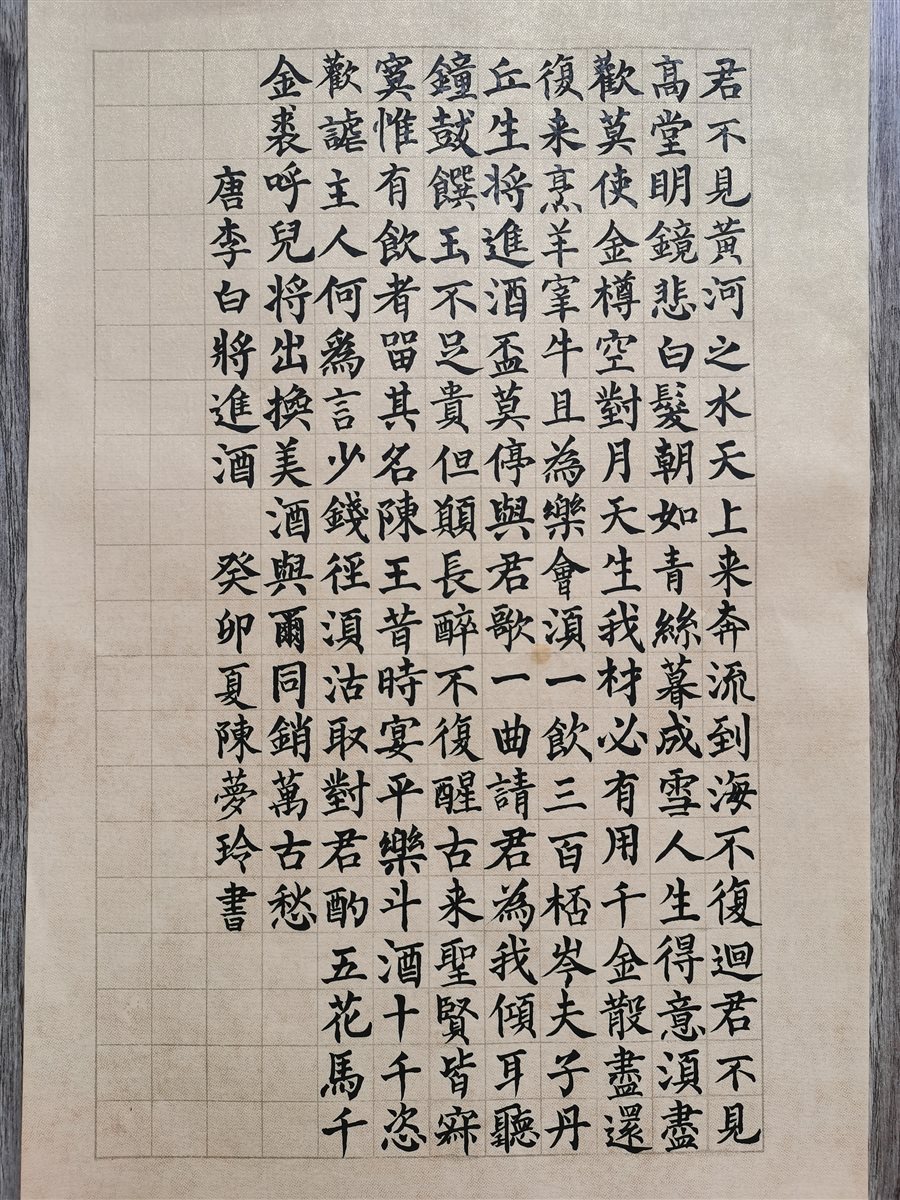 君不見黃河之水天上来奔流到海不復迴君不見
高堂眀鏡悲白髮朝如青絲暮成雪人生得意須盡
歡莫使金樽空對月天生我材必有用千金散盡還
復来烹羊宰牛且為樂會須一飲三百桮岑夫子丹
丘生将進酒盃莫停與君歌一曲請君為我傾耳聽
鐘鼓饌玉不足貴但願長醉不復醒古来聖賢皆寂
寞惟有飲者留其名陳王昔時宴平樂斗酒十千恣
歡謔主人何爲言少錢徑須沽取對君酌五花馬千
金裘呼兒将出換美酒與爾同銷萬古愁
唐李白將進酒 癸卯夏陳夢玲書